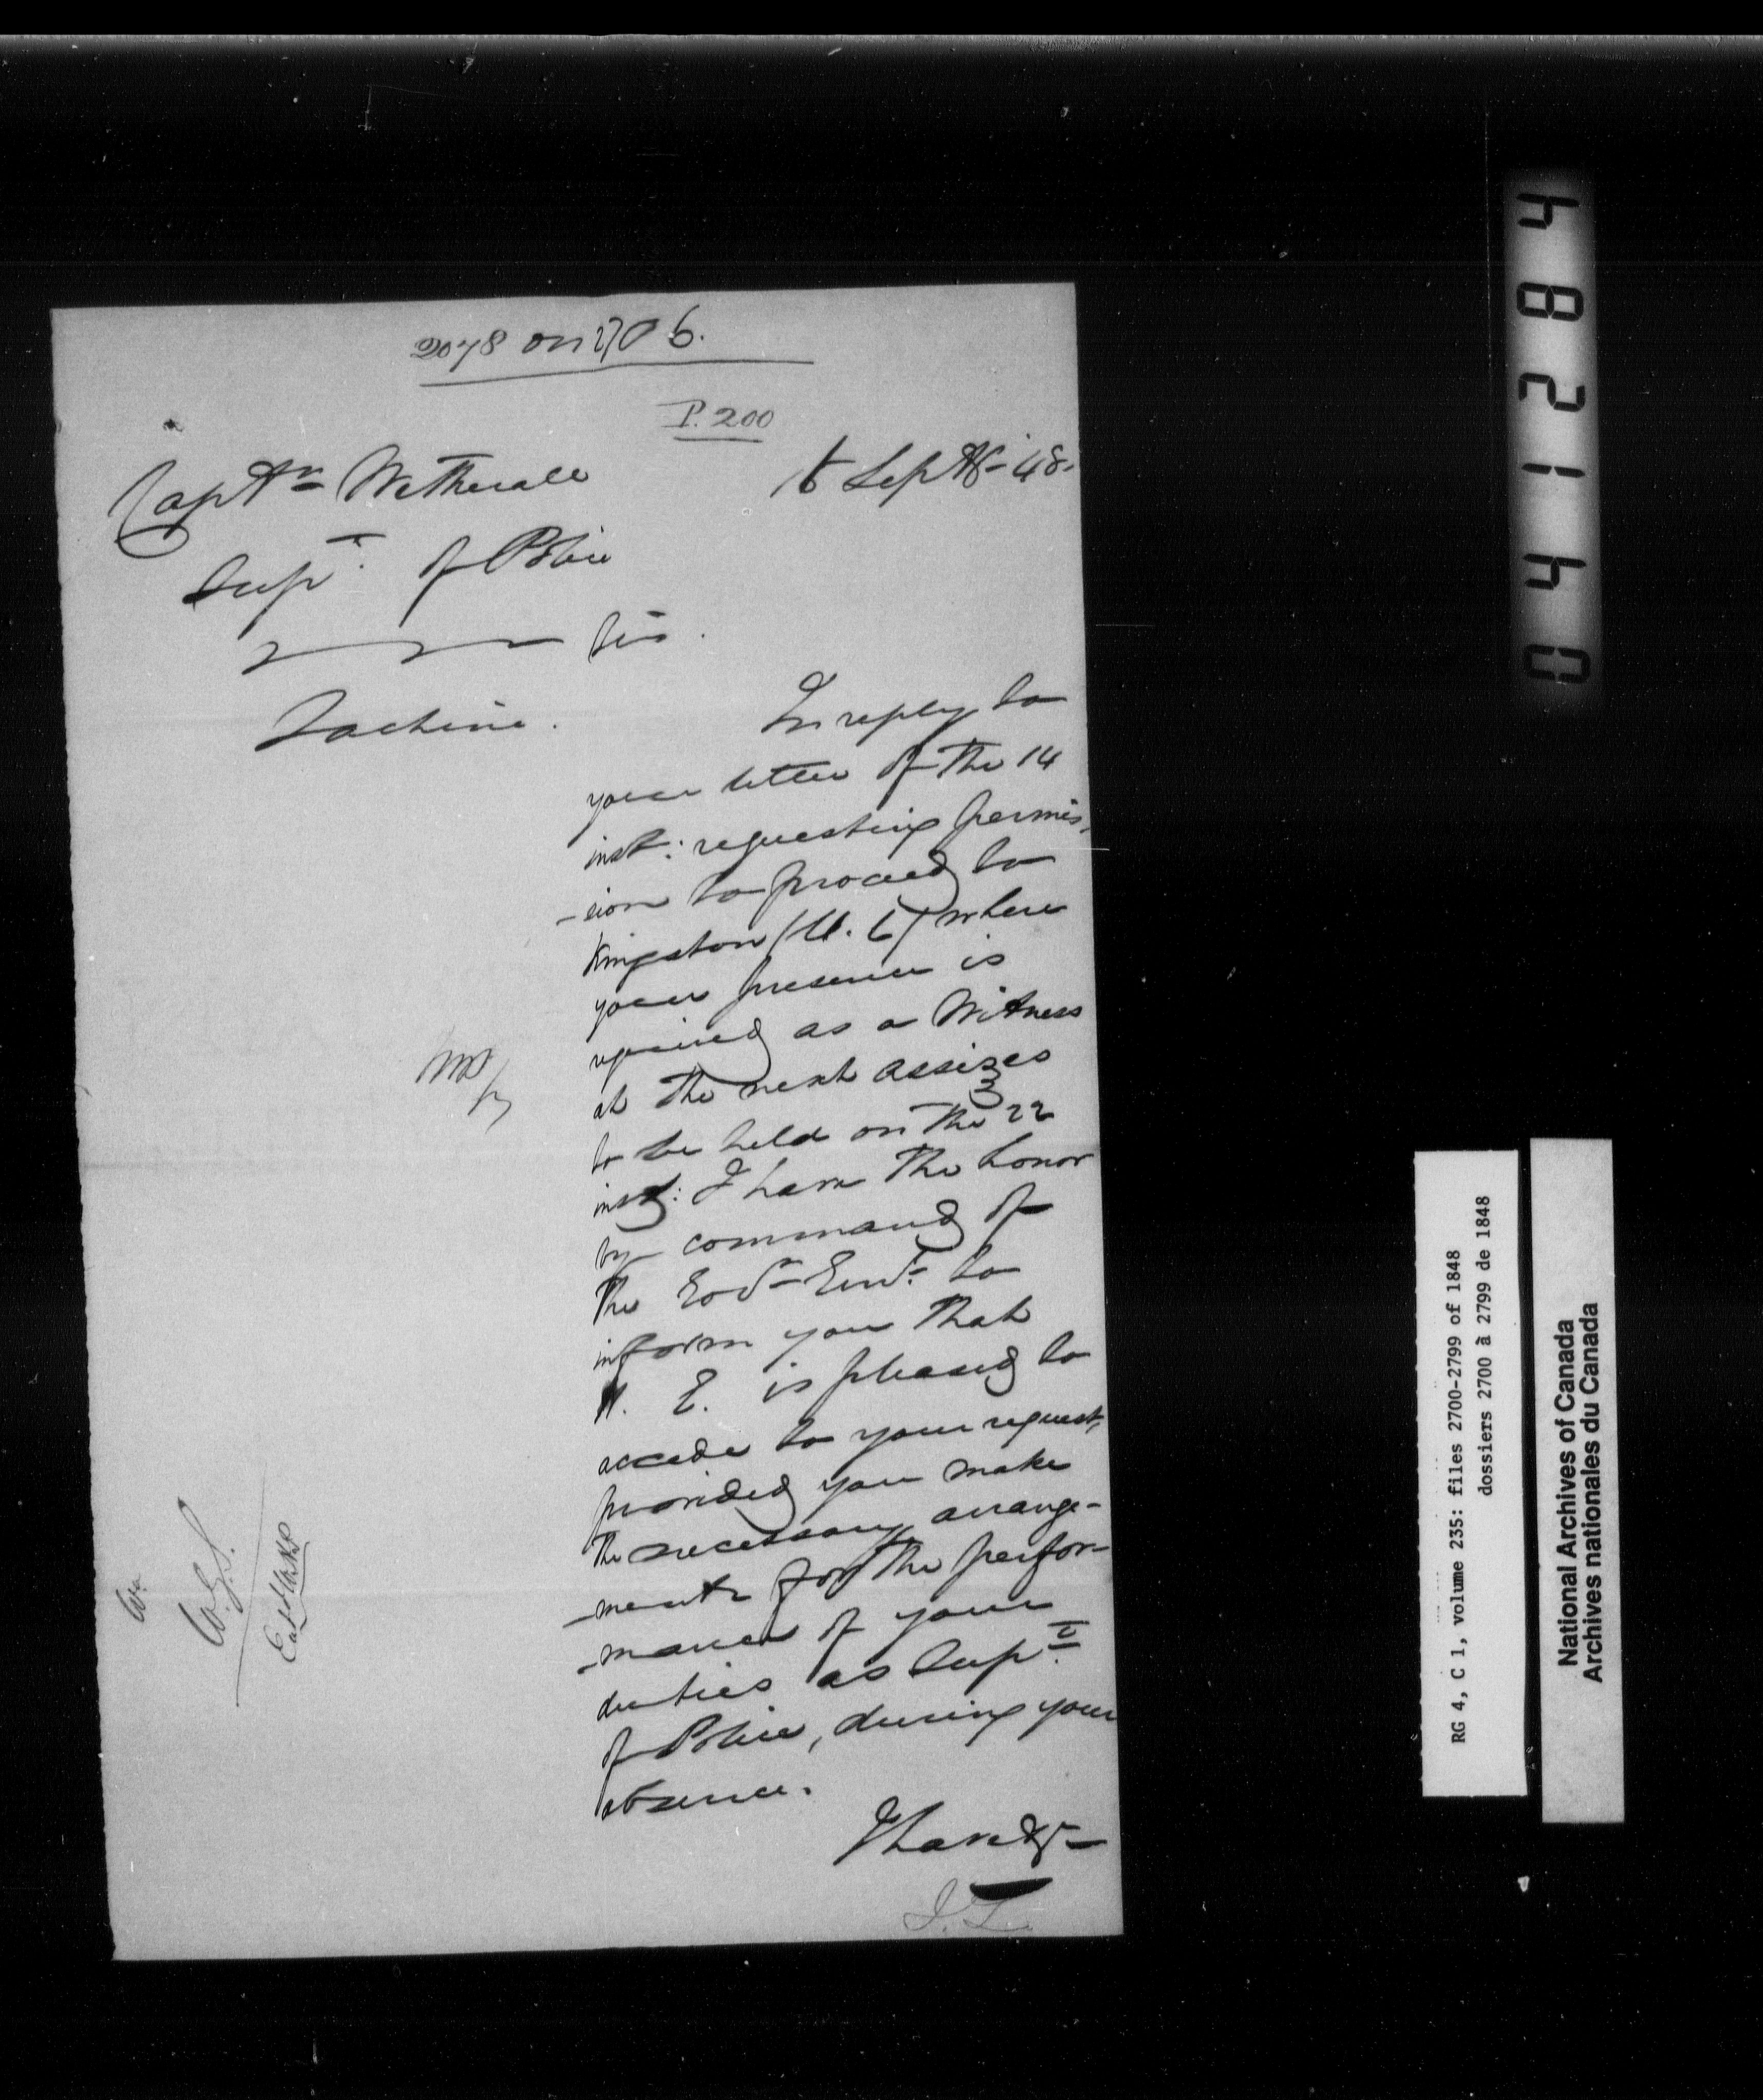 2078 on 2706.
P. 200
Capt<sup>n</sup> Wetherall
Sept<sup>r</sup> '48.
Sup<sup>t</sup>. of Police
Sir.
Lachine.
In reply to
your letter of the 14
inst: requesting permis-
-sion to proceed to
Kingston (U.C) where
your presence is
required as a Witness
at the next assizes
to be held on the 22
inst: I have the honor
by command of
the Gov<sup>r</sup> Genl. to
inform you that
H. E. is pleased to
accede to your request,
provided you make
the necessary arrange-
-ments for the perfor-
-mance of your
duties as Sup<sup>t</sup>.
of Police, during your
absence.
I have &c
048 21 4 0
RG 4, C 1, volume 235: files 2700-2799 of 1848
dossiers 2700 à 2799 de 1848
National Archives of Canada
Archives nationales du Canada